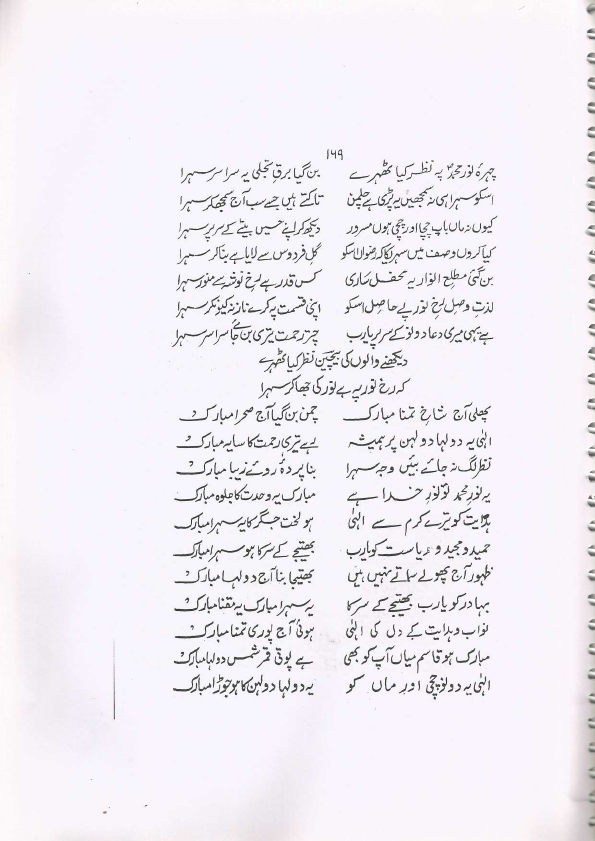 ۱۶۹
چہرۂ نور محمدؐ پہ نظر کیا ٹھہرے بن گیا برقِ تجلی یہ سراسر سہرا
اسکو سہرا ہی نہ سمجھیں یہ پڑی ہے چلمن تاکتے ہیں جسے سب آج سمجھکر سہرا
کیوں نہ ماں باپ چچا اور چچی ہوں مسرور دیکھ کر اپنے حسیں بیٹے کے سر پر سہرا
کیا کروں وصف میں سہرے کا کہ رضواں اسکو گلِ فردوس سے لایا ہے بنا کر سہرا
بن گئی مطلع انوار یہ محفل ساری کس قدر ہے رخِ نوشہ سے منور سہرا
لذتِ وصل رخِ نور ہے حاصل اسکو اپنی قسمت پہ کرے ناز نہ کیونکر سہرا
ہے یہی میری دعا دولہ کے سر پر یارب چترِ رحمت تیری بن جائے سراسر سہرا
دیکھنے والوں کی بیچین نظر کیا ٹھہرے
کہ رخِ نور پہ ہے نور کی جھا کر سہرا
پھلی آج شاخِ تمنا مبارک چمن بن گیا آج صحرا مبارک
الٰہی یہ دولہا دولہن پر ہمیشہ رہے تیری رحمت کا سایہ مبارک
نظر لگ نہ جائے بئیں وجہ سہرا بنا پردۂ روئے زیبا مبارک
یہ نورِ محمد تو نورِ خدا ہے مبارک یہ وحدت کا جلوہ مبارک
ہدایت کو تیرے کرم سے الٰہی ہو لختِ جگر کا یہ سہرا مبارک
حمید و مجید و ریاست کو یارب بھتیجے کے سر کا ہو سہرا مبارک
ظہور آج پھولے سماتے نہیں ہیں بھتیجا بنا آج دولہا مبارک
بہادر کو یارب بھتیجے کے سر کا یہ سہرا مبارک یہ مقنا مبارک
نواب و ہدایت کے دل کی الٰہی ہوئی آج پوری تمنا مبارک
مبارک ہو قاسم میاں آپ کو بھی ہے پوتی قمر شمس دولہا مبارک
الٰہی یہ دونو چچی اور ماں کو یہ دولہا دولہن کا ہو جوڑا مبارک